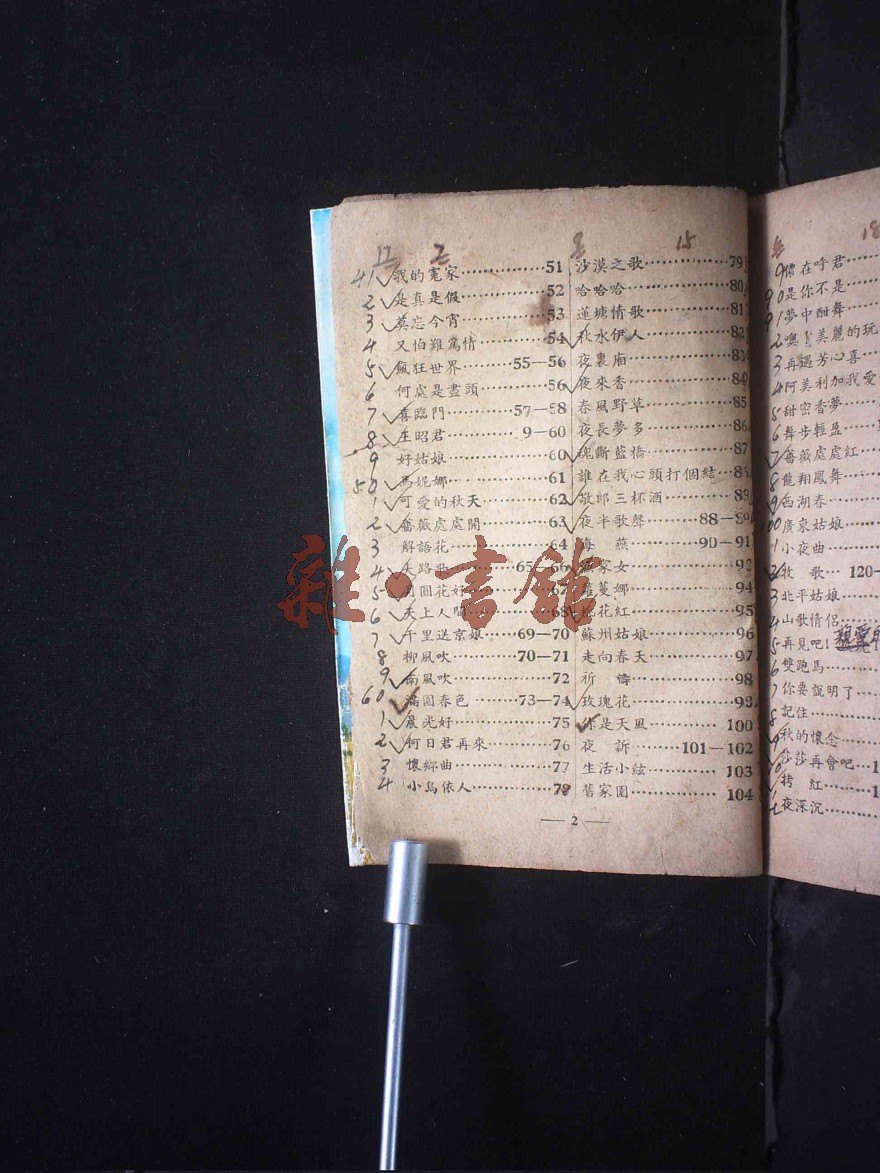 17 7 8 15
41 我的冤家 51
2 是真是假 52
3 莫忘今宵 53
4 又怕難爲情 54
5 瘋狂世界 55—56
6 何處是盡頭 56
7 喜臨門 57—58
8 王昭君 9—60
9 好姑娘 60
50 馬妮娜 61
1 可愛的秋天 62
2 薔薇處處開 63
3 解語花 64
4 天路歌 65—66
5 月圓花好 67
6 天上人間 68
7 千里送京娘 69—70
8 柳風吹 70—71
9 南風吹 72
60 滿園春色 73—74
1 晨光好 75
2 何日君再來 76
3 懷鄉曲 77
4 小鳥依人 78
沙漠之歌 79
哈哈哈 80
蓮塘情歌 81
秋水伊人 82
夜裏廂 83
夜來香 84
春風野草 85
夜長夢多 86
魂斷藍橋 87
誰在我心頭打個結
敬郎三杯酒 89
夜半歌聲 88—89
海燕 90—91
家女 93
蔓娜 94
桃花紅 95
蘇州姑娘 96
走向春天 97
祈禱 98
玫瑰花 99
你是天風 100
夜訴 101—102
生活小絃 103
舊家園 104
— 2 —
18
9 在呼君
90 是你不是
91 夢中酣舞
2 噢！美麗的玩
3 再遇芳心喜
4 阿美利加我愛
5 甜密香夢
6 舞步輕盈
7 薔薇處處紅
8 龍翔鳳舞
9 西湖春
00 廣東姑娘
1 小夜曲
2 牧歌 120-
3 北平姑娘
4 山歌情侶
5 再見吧！
6 雙跑馬
7 你要說明了
8 記住
9 秋的懷念
10 莎莎再會吧
拷紅
夜深沉
雜·書館